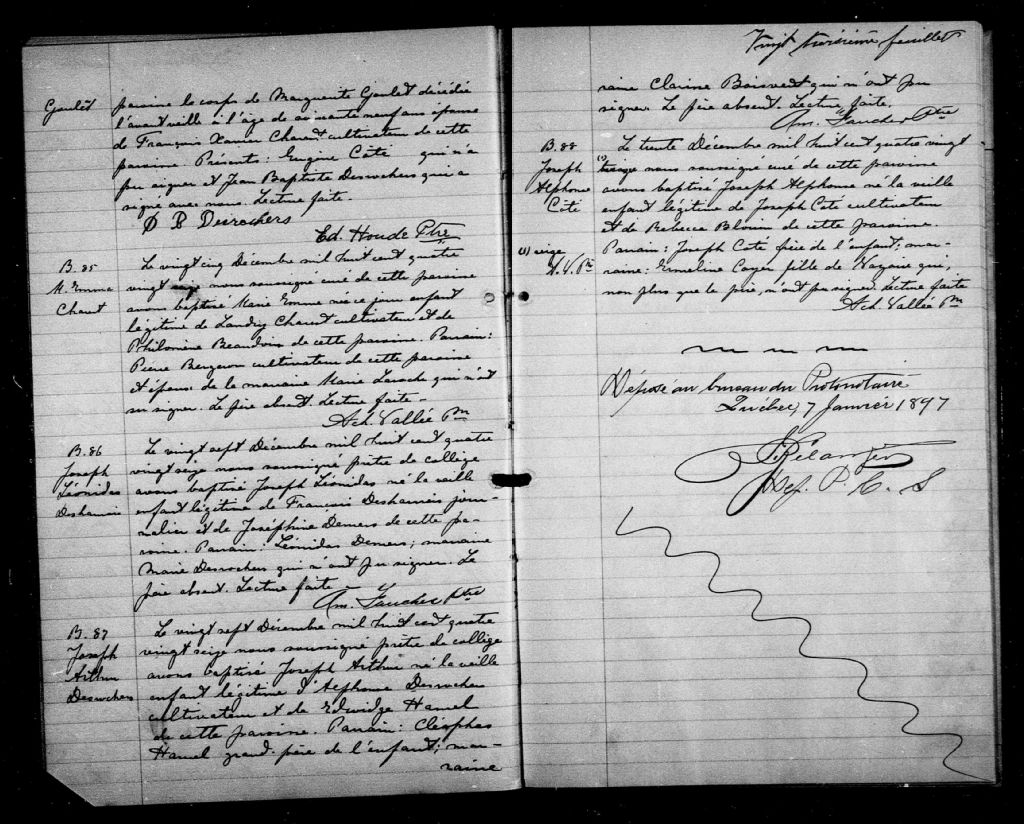 Goulet
paroisse le corps de Marguerite Goulet décédée
l'avant veille à l'age de soixante neuf ans épouse
de François Xavier Charest cultivateur de cette
paroisse. Présents: Eugène Côté qui n'a
pu signer et Jean Baptiste Desrochers qui a
signé avec nous. Lecture faite.
B Desrochers
Ed. Houde Ptre
B. 85
M. Emma
Charest
Le vingt cinq Décembre mil huit cent quatre
vingt seize nous soussigné curé de cette paroisse
avons baptisé Marie Emma née ce jour enfant
légitime de Landry Charest cultivateur et de
Philomène Beaudoin de cette paroisse. Parrain:
Pierre Bergeron cultivateur de cette paroisse
et époux de la marraine Marie Laroche qui n'ont
su signer. Le père absent. Lecture faite.
Ach. Vallée Ptre
B. 86
Joseph
Léonidas
Deshamais
Le vingt sept Décembre mil huit cent quatre
vingt seize nous soussigné prêtre de collège
avons baptisé Joseph Léonidas né la veille
enfant légitime de François Deshamais jour-
nalier et de Joséphine Demers de cette pa-
roisse. Parrain: Léonidas Demers; marraine
Marie Desrochers qui n'ont pu signer. Le
père absent. Lecture faite
Am. Faucher Ptre
B. 87
Joseph
Arthur
Desrochers
Le vingt sept Décembre mil huit cent quatre
vingt seize nous soussigné prêtre de collège
avons baptisé Joseph Arthur né la veille
enfant légitime d'Alphonse Desrochers
cultivateur et de Edwidge Hamel
de cette paroisse. Parrain: Cléophas
Hamel grand-père de l'enfant; mar-
raine
Vingt troisième feuillet
raine Clarisse Boisvert qui n'ont pu
signer. Le père absent. Lecture faite.
Am. Faucher Ptre
B. 88
Joseph
Alphonse
Côté
(1) seize
A. V. Ptre
Le trente Décembre mil huit cent quatre vingt
(1) nous soussigné curé de cette paroisse
avons baptisé Joseph Alphonse né la veille
enfant légitime de Joseph Coté cultivateur
et de Rebecca Blouin de cette paroisse.
Parrain: Joseph Coté frère de l'enfant; mar-
raine: Emeline Coyer fille de Nazaire qui,
non plus que le père, n'ont pu signer. Lecture faite
Ach. Vallée Ptre
Déposé au bureau du Protonotaire
Québec, 7 Janvier 1897
Dep. P. C. S